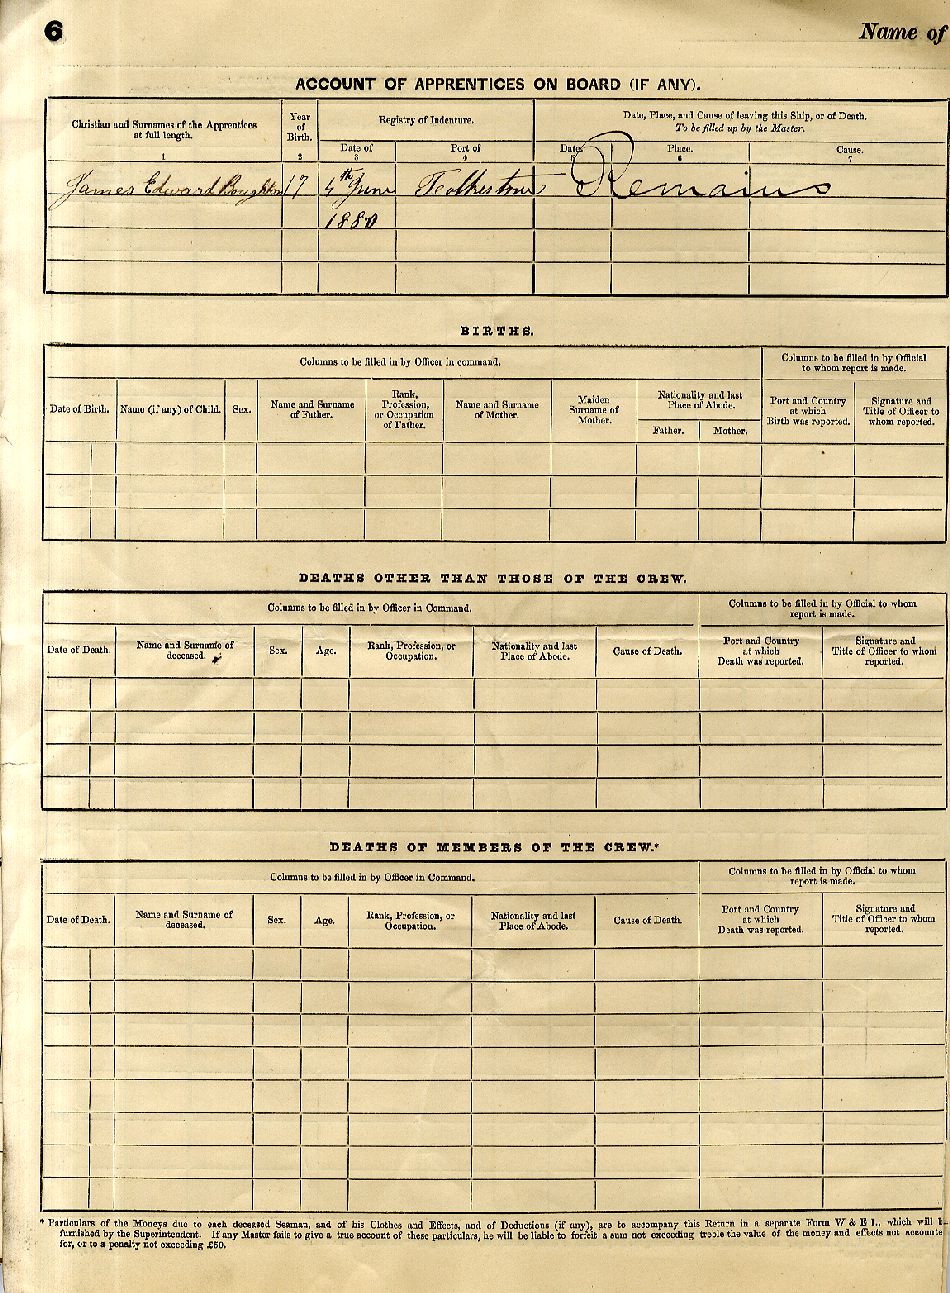 6
Name of
ACCOUNT OF APPRENTICES ON BOARD (IF ANY).
Christian and Surnames of the Apprentices at full length.
Year of Birth.
Registry of Indenture.
Date, Place, and Cause of leaving this Ship, or of Death.
To be filled up by the Master.
Date of
Port of
Date
Place.
Cause.
1 2 3 4 5 6 7
James Edward Boughton 17 4th June Folkestone Remains
1880
BIRTHS.
Columns to be filled in by Officer in command.
Columns to be filled in by Official to whom report is made.
Date of Birth.
Name (if any) of Child.
Sex.
Name and Surname of Father.
Rank, Profession, or Occupation of Father.
Name and Surname of Mother.
Maiden Surname of Mother.
Nationality and last Place of Abode.
Father.
Mother.
Port and Country at which Birth was reported.
Signature and Title of Officer to whom reported.
DEATHS OTHER THAN THOSE OF THE CREW.
Columns to be filled in by Officer in Command.
Columns to be filled in by Official to whom report is made.
Date of Death.
Name and Surname of deceased.
Sex.
Age.
Rank, Profession, or Occupation.
Nationality and last Place of Abode.
Cause of Death.
Port and Country at which Death was reported.
Signature and Title of Officer to whom reported.
DEATHS OF MEMBERS OF THE CREW.*
Columns to be filled in by Officer in Command.
Columns to be filled in by Official to whom report is made.
Date of Death.
Name and Surname of deceased.
Sex.
Age.
Rank, Profession, or Occupation.
Nationality and last Place of Abode.
Cause of Death.
Port and Country at which Death was reported.
Signature and Title of Officer to whom reported.
* Particulars of the Moneys due to each deceased Seaman, and of his Clothes and Effects, and of Deductions (if any), are to accompany this Return in a separate Form W & E 1., which will
furnished by the Superintendent. If any Master fails to give a true account of these particulars, he will be liable to forfeit a sum not exceeding treble the value of the money and effects not
for, or to a penalty not exceeding £50.